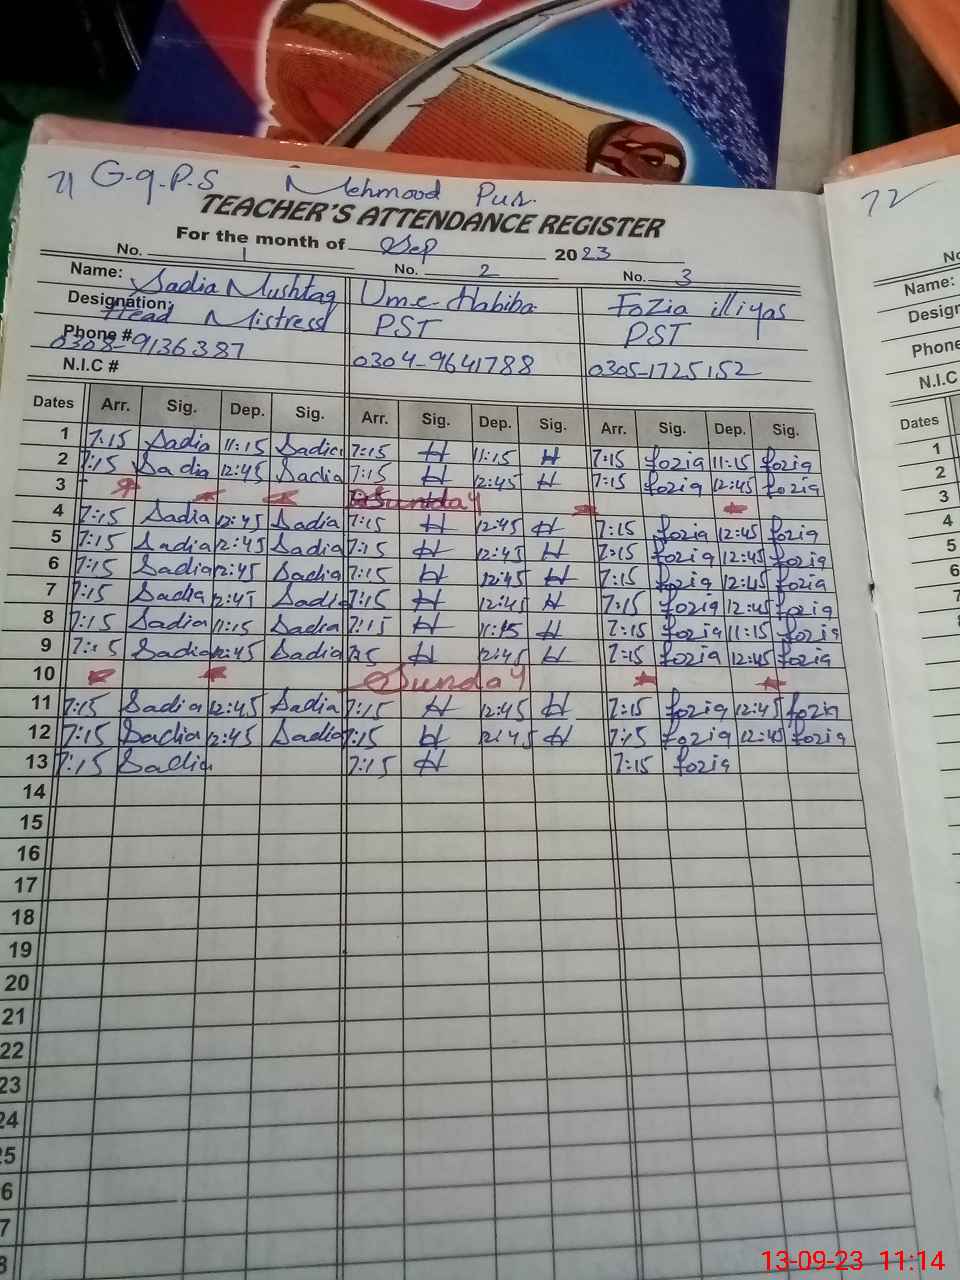 71 G.g.P.S Mehmood Pur.
72
TEACHER'S ATTENDANCE REGISTER
For the month of Sep 2023
No. 1 No. 2 No. 3
Name: Sadia Mushtaq Ume Habiba Fozia illiyas
Designation: Head Mistress PST PST
Phone # 0308-9136387 0304-9641788 0305-1725152
N.I.C #
Dates Arr. Sig. Dep. Sig. Arr. Sig. Dep. Sig. Arr. Sig. Dep. Sig.
1 7:15 Sadia 11:15 Sadia 7:15 H 11:15 H 7:15 fozia 11:15 fozia
2 7:15 Sadia 12:45 Sadia 7:15 H 12:45 H 7:15 fozia 12:45 fozia
3 Sunday
4 7:15 Sadia 12:45 Sadia 7:15 H 12:45 H 7:15 fozia 12:45 fozia
5 7:15 Sadia 12:45 Sadia 7:15 H 12:45 H 7:15 fozia 12:45 fozia
6 7:15 Sadia 12:45 Sadia 7:15 H 12:45 H 7:15 fozia 12:45 fozia
7 7:15 Sadia 12:45 Sadia 7:15 H 12:45 H 7:15 fozia 12:45 fozia
8 7:15 Sadia 11:15 Sadia 7:15 H 11:15 H 7:15 fozia 11:15 fozia
9 7:15 Sadia 12:45 Sadia 7:15 H 12:45 H 7:15 fozia 12:45 fozia
10 Sunday
11 7:15 Sadia 12:45 Sadia 7:15 H 12:45 H 7:15 fozia 12:45 fozia
12 7:15 Sadia 12:45 Sadia 7:15 H 12:45 H 7:15 fozia 12:45 fozia
13 7:15 Sadia 7:15 H 7:15 fozia
14
15
16
17
18
19
20
21
22
23
24
Name:
Phone
N.I.C #
Dates
1
2
3
4
5
6
13-09-23 11:14